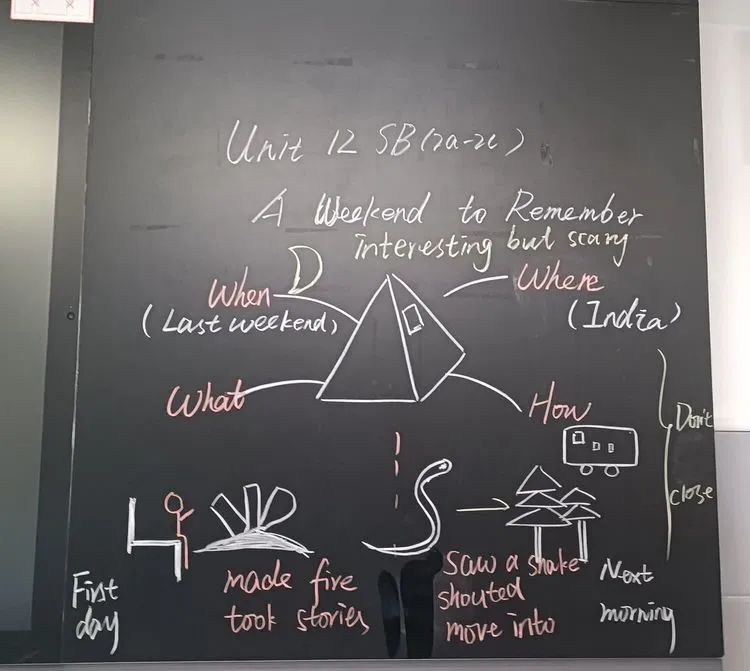 Unit 12 SB(2a-2c)
A Weekend to Remember
interesting but scary
When
Where
(Last weekend)
(India)
What
How
Don't
close
First
day
made fire
took stories
saw a snake
shouted
move into
Next
morning